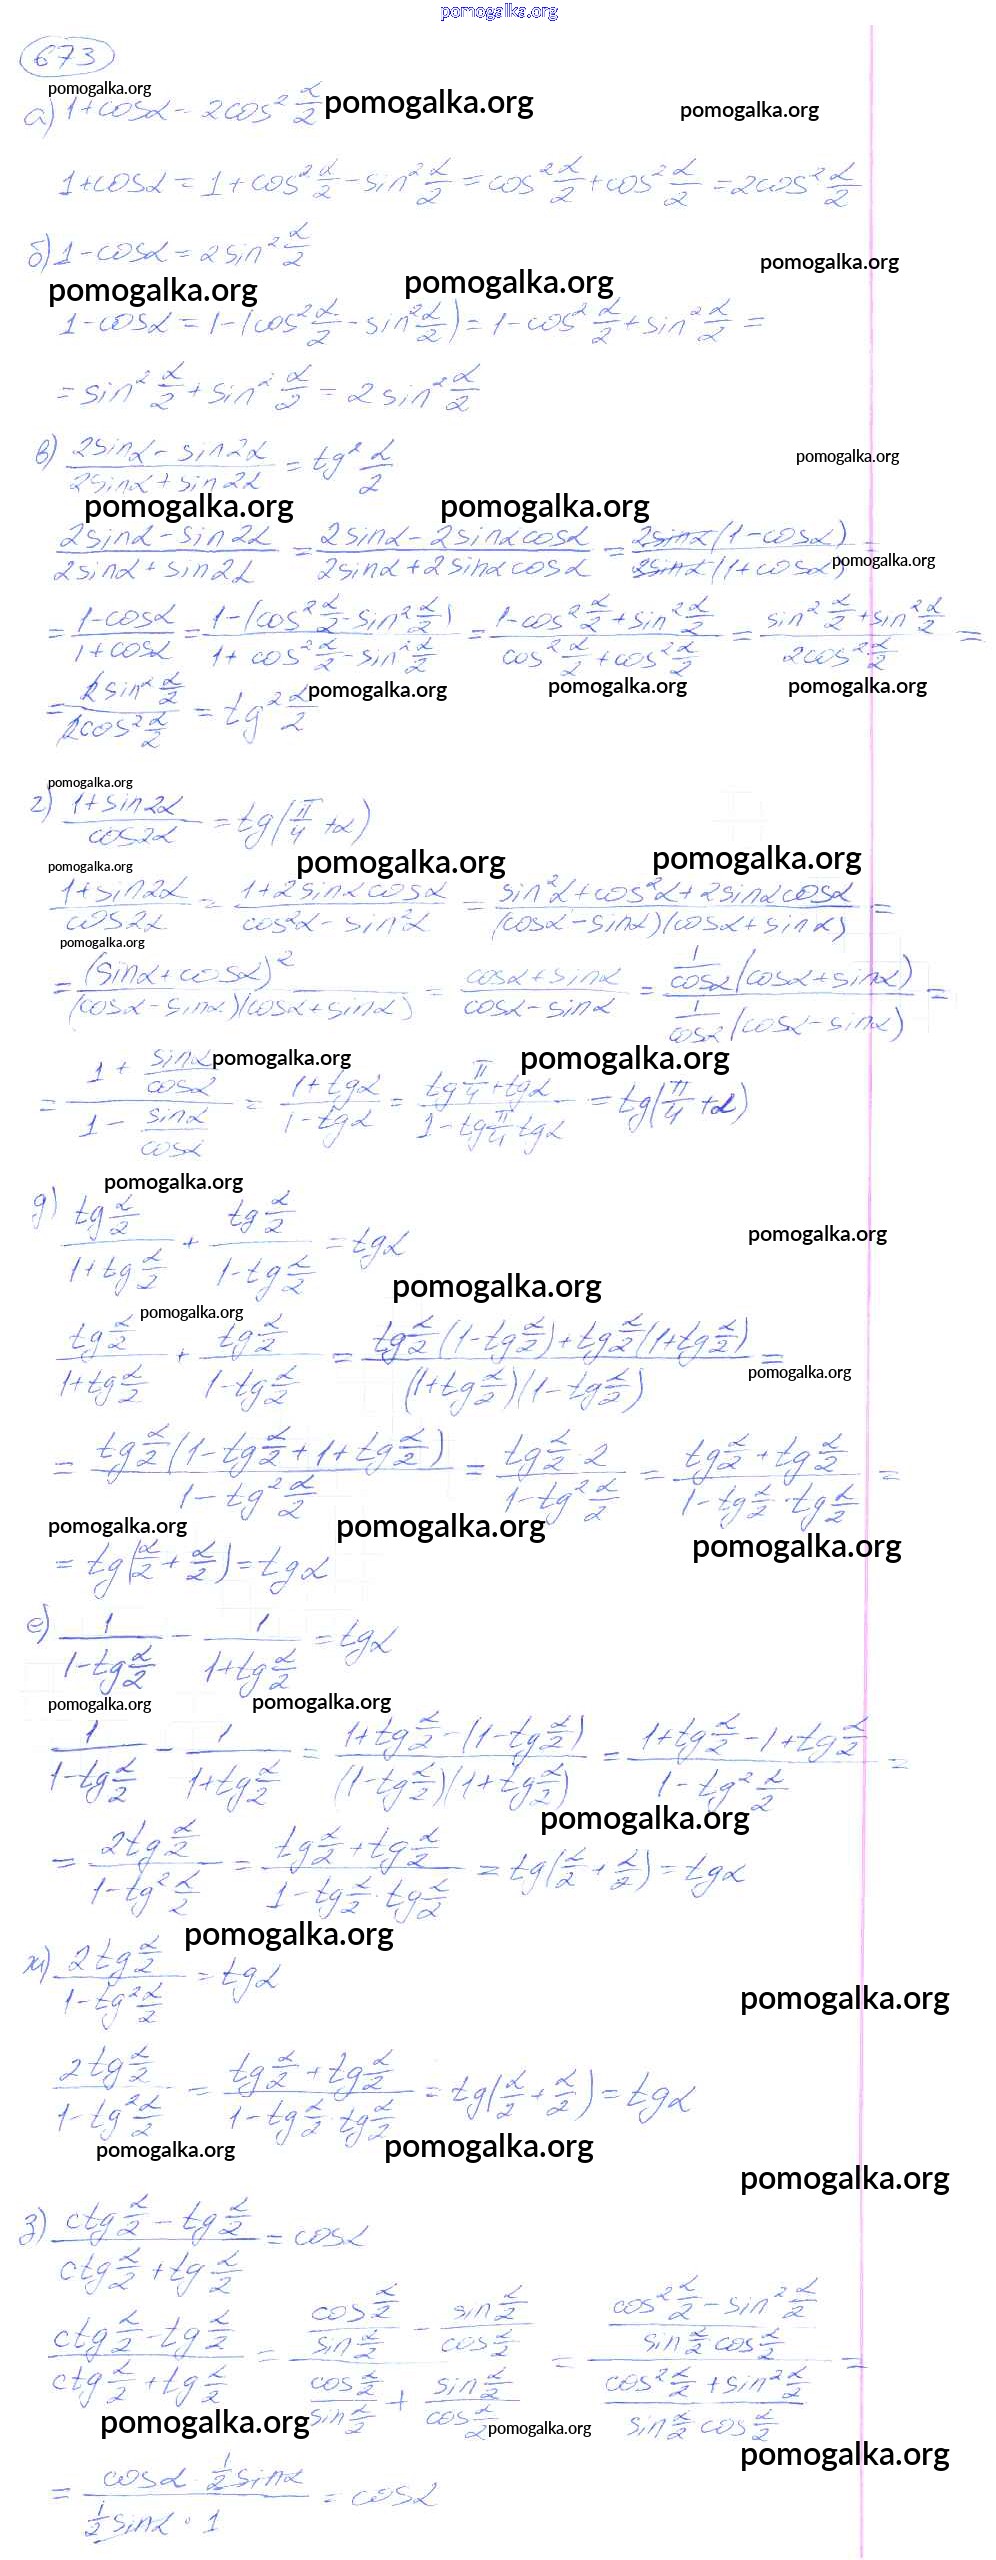 pomogalka.org
673
pomogalka.org
а) 1+cosα = 2cos² α/2 pomogalka.org pomogalka.org
1+cosα = 1+cos² α/2 - sin² α/2 = cos² α/2 + cos² α/2 = 2cos² α/2
б) 1-cosα = 2sin² α/2
pomogalka.org pomogalka.org pomogalka.org
1-cosα = 1-(cos² α/2 - sin² α/2) = 1-cos² α/2 + sin² α/2 =
= sin² α/2 + sin² α/2 = 2sin² α/2
в) (2sinα - sin2α)/(2sinα + sin2α) = tg² α/2
pomogalka.org
pomogalka.org pomogalka.org
(2sinα - sin2α)/(2sinα + sin2α) = (2sinα - 2sinαcosα)/(2sinα + 2sinαcosα) = (2sinα(1-cosα))/(2sinα(1+cosα)) =
pomogalka.org
= (1-cosα)/(1+cosα) = (1-(cos² α/2 - sin² α/2))/(1+cos² α/2 - sin² α/2) = (1-cos² α/2 + sin² α/2)/(cos² α/2 + cos² α/2) = (sin² α/2 + sin² α/2)/(2cos² α/2) =
= (2sin² α/2)/(2cos² α/2) = tg² α/2
pomogalka.org pomogalka.org pomogalka.org
pomogalka.org
г) (1+sin2α)/(cos2α) = tg(π/4 + α)
pomogalka.org pomogalka.org pomogalka.org
(1+sin2α)/(cos2α) = (1+2sinαcosα)/(cos²α - sin²α) = (sin²α + cos²α + 2sinαcosα)/((cosα - sinα)(cosα + sinα)) =
pomogalka.org
= (sinα + cosα)²/((cosα - sinα)(cosα + sinα)) = (cosα + sinα)/(cosα - sinα) = (1/cosα (cosα + sinα))/(1/cosα (cosα - sinα)) =
pomogalka.org pomogalka.org
= (1 + sinα/cosα)/(1 - sinα/cosα) = (1+tgα)/(1-tgα) = (tg π/4 + tgα)/(1 - tg π/4 tgα) = tg(π/4 + α)
pomogalka.org
д) (tg α/2)/(1+tg α/2) + (tg α/2)/(1-tg α/2) = tgα
pomogalka.org
pomogalka.org
pomogalka.org
(tg α/2)/(1+tg α/2) + (tg α/2)/(1-tg α/2) = (tg α/2 (1-tg α/2) + tg α/2 (1+tg α/2))/((1+tg α/2)(1-tg α/2)) =
pomogalka.org
= (tg α/2 (1-tg α/2 + 1 + tg α/2))/(1-tg² α/2) = (tg α/2 · 2)/(1-tg² α/2) = (tg α/2 + tg α/2)/(1-tg α/2 · tg α/2) =
pomogalka.org pomogalka.org pomogalka.org
= tg(α/2 + α/2) = tgα
е) 1/(1-tg α/2) - 1/(1+tg α/2) = tgα
pomogalka.org pomogalka.org
1/(1-tg α/2) - 1/(1+tg α/2) = (1+tg α/2 - (1-tg α/2))/((1-tg α/2)(1+tg α/2)) = (1+tg α/2 - 1 + tg α/2)/(1-tg² α/2) =
pomogalka.org
= (2tg α/2)/(1-tg² α/2) = (tg α/2 + tg α/2)/(1-tg α/2 · tg α/2) = tg(α/2 + α/2) = tgα
pomogalka.org
ж) (2tg α/2)/(1-tg² α/2) = tgα
pomogalka.org
(2tg α/2)/(1-tg² α/2) = (tg α/2 + tg α/2)/(1-tg α/2 · tg α/2) = tg(α/2 + α/2) = tgα
pomogalka.org pomogalka.org
pomogalka.org
з) (ctg α/2 - tg α/2)/(ctg α/2 + tg α/2) = cosα
(ctg α/2 - tg α/2)/(ctg α/2 + tg α/2) = ((cos α/2)/(sin α/2) - (sin α/2)/(cos α/2))/((cos α/2)/(sin α/2) + (sin α/2)/(cos α/2)) = ((cos² α/2 - sin² α/2)/(sin α/2 cos α/2))/((cos² α/2 + sin² α/2)/(sin α/2 cos α/2)) =
pomogalka.org pomogalka.org
pomogalka.org
= (cosα · 1/2 sinα)/(1/2 sinα · 1) = cosα